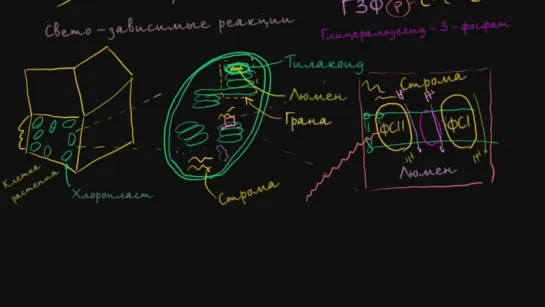 ГЗФ Р
Свето-зависимые реакции
Глицеральдегид-3-фосфат
Тилакоид
Люмен
Грана
Строма
Клетка
растения
Хлоропласт
Строма
H⁺ H⁺
ФСII ФСI
H⁺ H⁺
Люмен